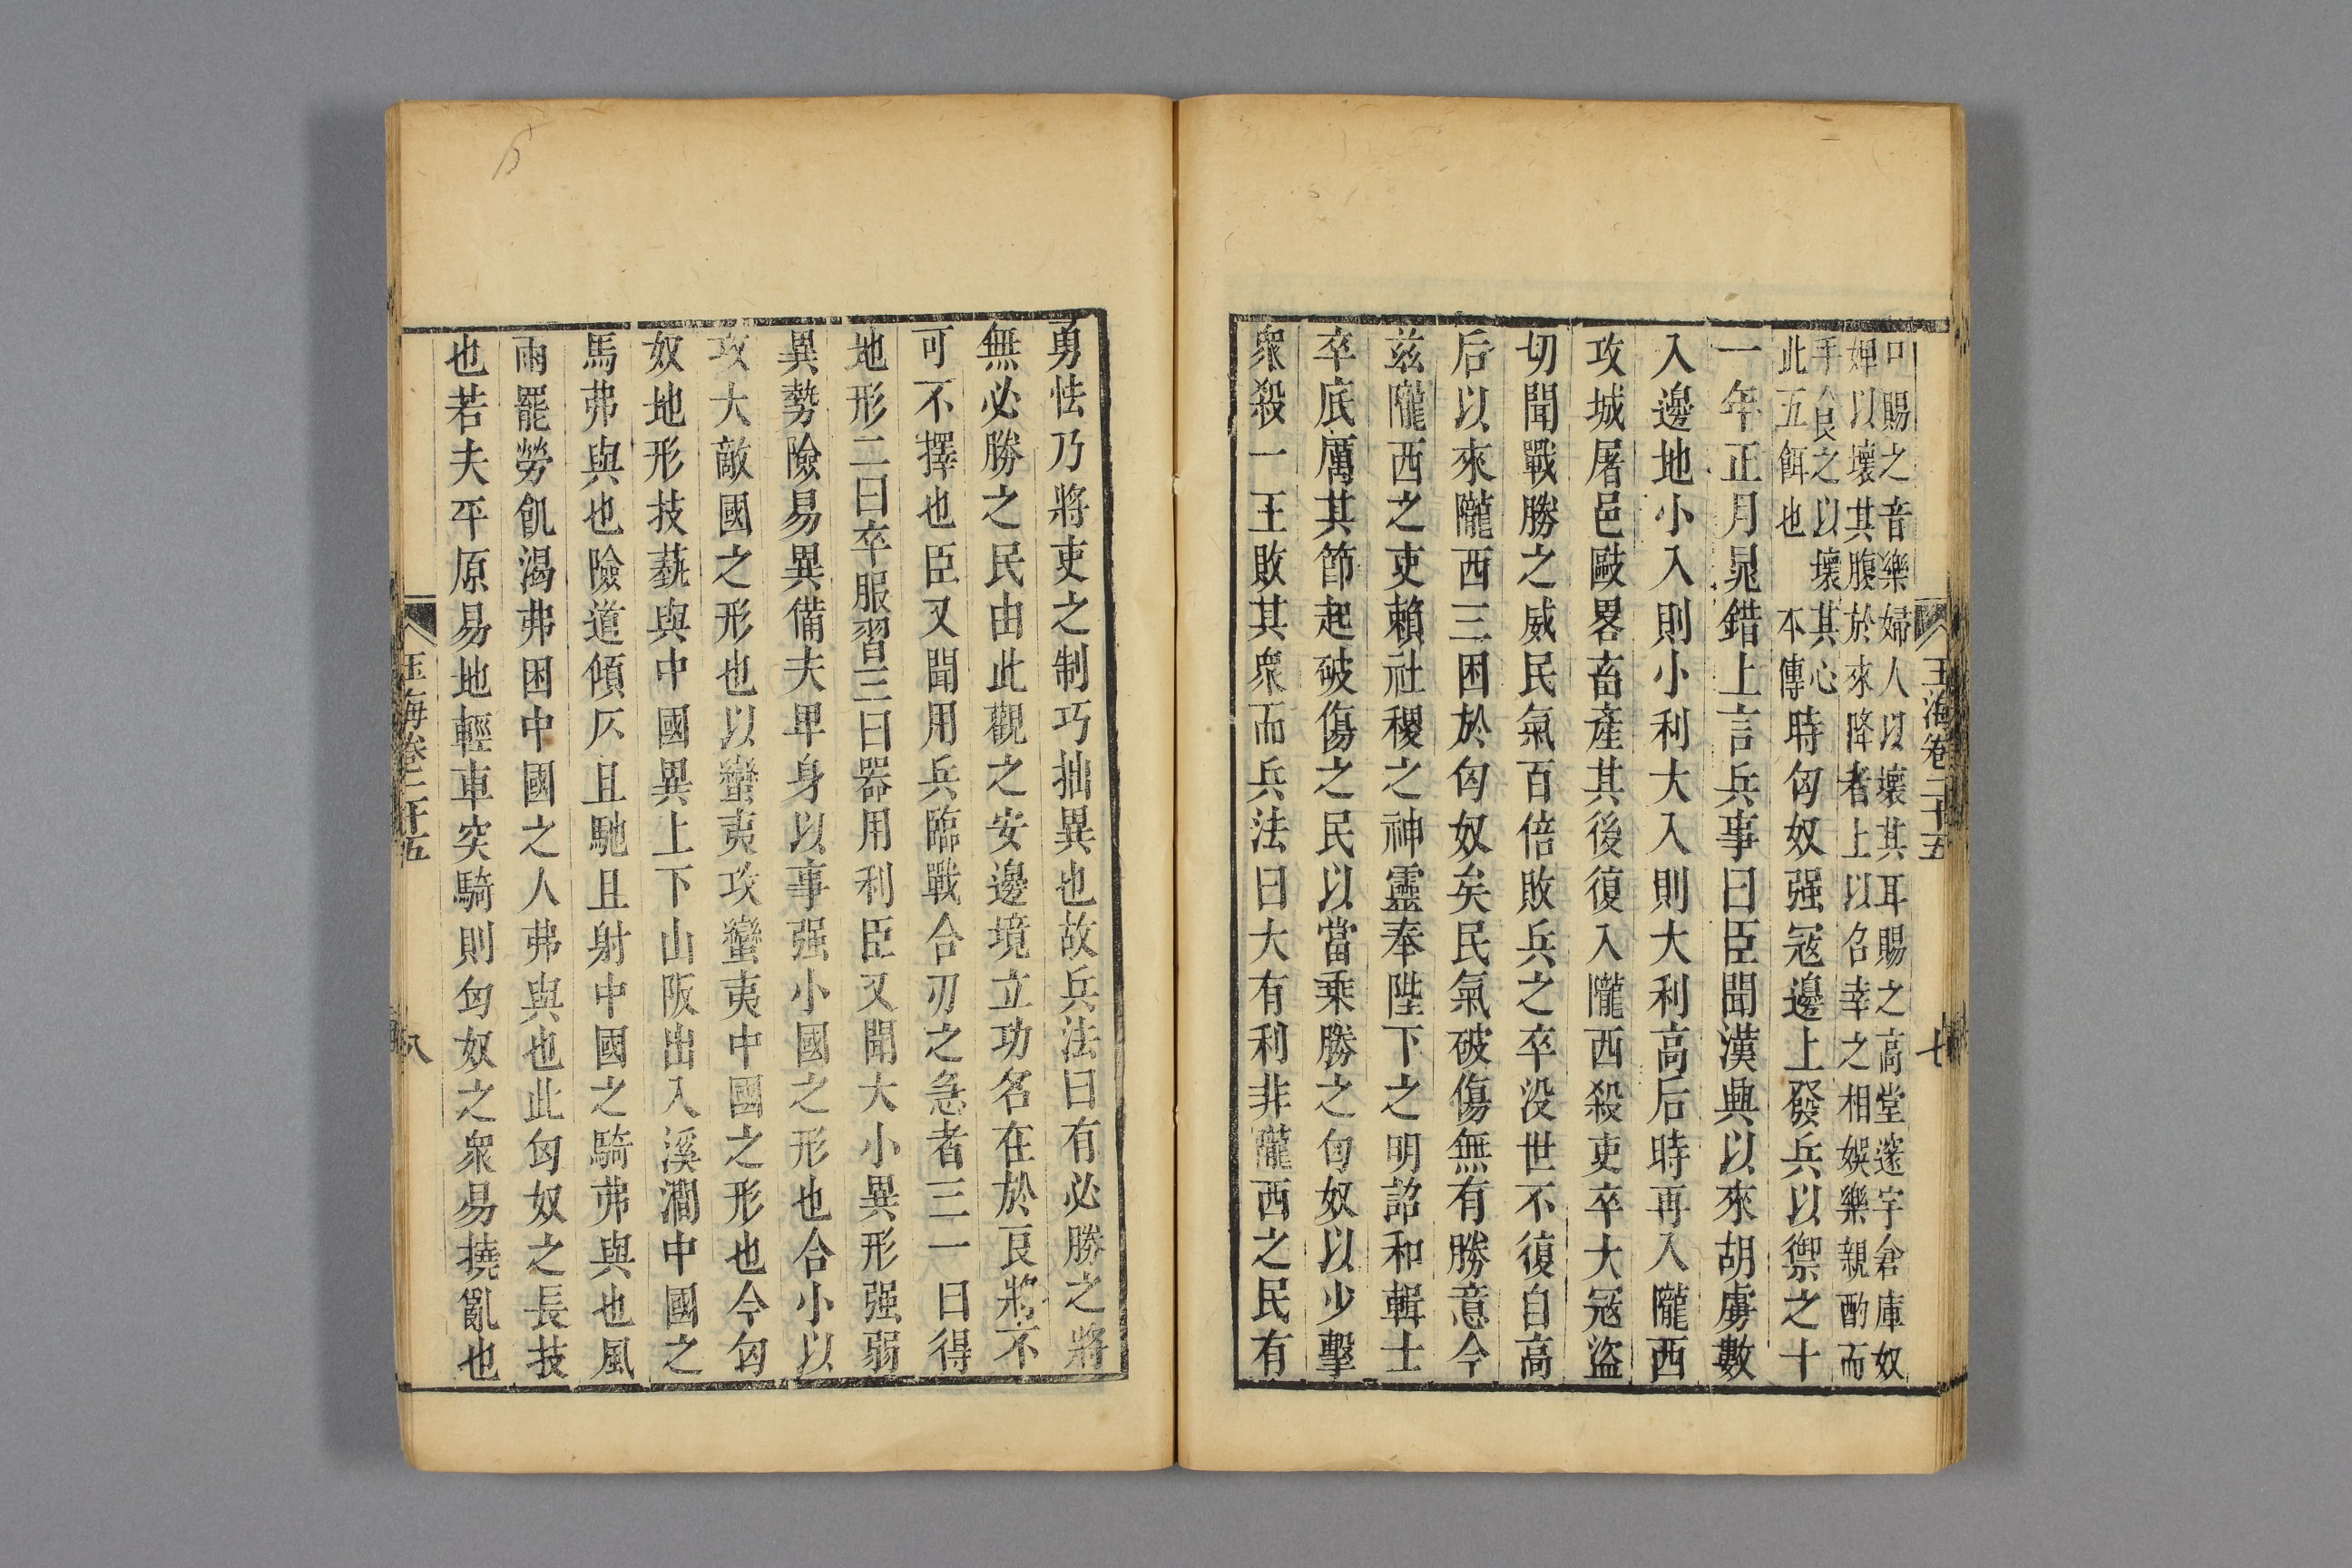 玉海卷二十五
七
口賜之音樂婦人以壞其耳賜之高堂邃宇倉庫奴
婢以壞其腹於來降者上以召幸之相娛樂親酌而
手食之以壞其心
此五餌也 本傳
時匈奴强寇邊上發兵以禦之十
一年正月晁錯上言兵事曰臣聞漢興以來胡虜數
入邊地小入則小利大入則大利高后時再入隴西
攻城屠邑敺畧畜產其後復入隴西殺吏卒大寇盜
切聞戰勝之威民氣百倍敗兵之卒没世不復自高
后以來隴西三困於匈奴矣民氣破傷無有勝意今
兹隴西之吏賴社稷之神靈奉陛下之明詔和輯士
卒底厲其節起破傷之民以當乘勝之匈奴以少擊
衆殺一王敗其衆而兵法曰大有利非隴西之民有
勇怯乃將吏之制巧拙異也故兵法曰有必勝之將
無必勝之民由此觀之安邊境立功名在於良將不
可不擇也臣又聞用兵臨戰合刃之急者三一曰得
地形二曰卒服習三曰器用利臣又聞大小異形强弱
異勢險易異備夫卑身以事强小國之形也合小以
攻大敵國之形也以蠻夷攻蠻夷中國之形也今匈
奴地形技藝與中國異上下山阪出入溪澗中國之
馬弗與也險道傾仄且馳且射中國之騎弗與也風
雨罷勞飢渴弗困中國之人弗與也此匈奴之長技
也若夫平原易地輕車突騎則匈奴之衆易撓亂也
玉海卷二十五
八